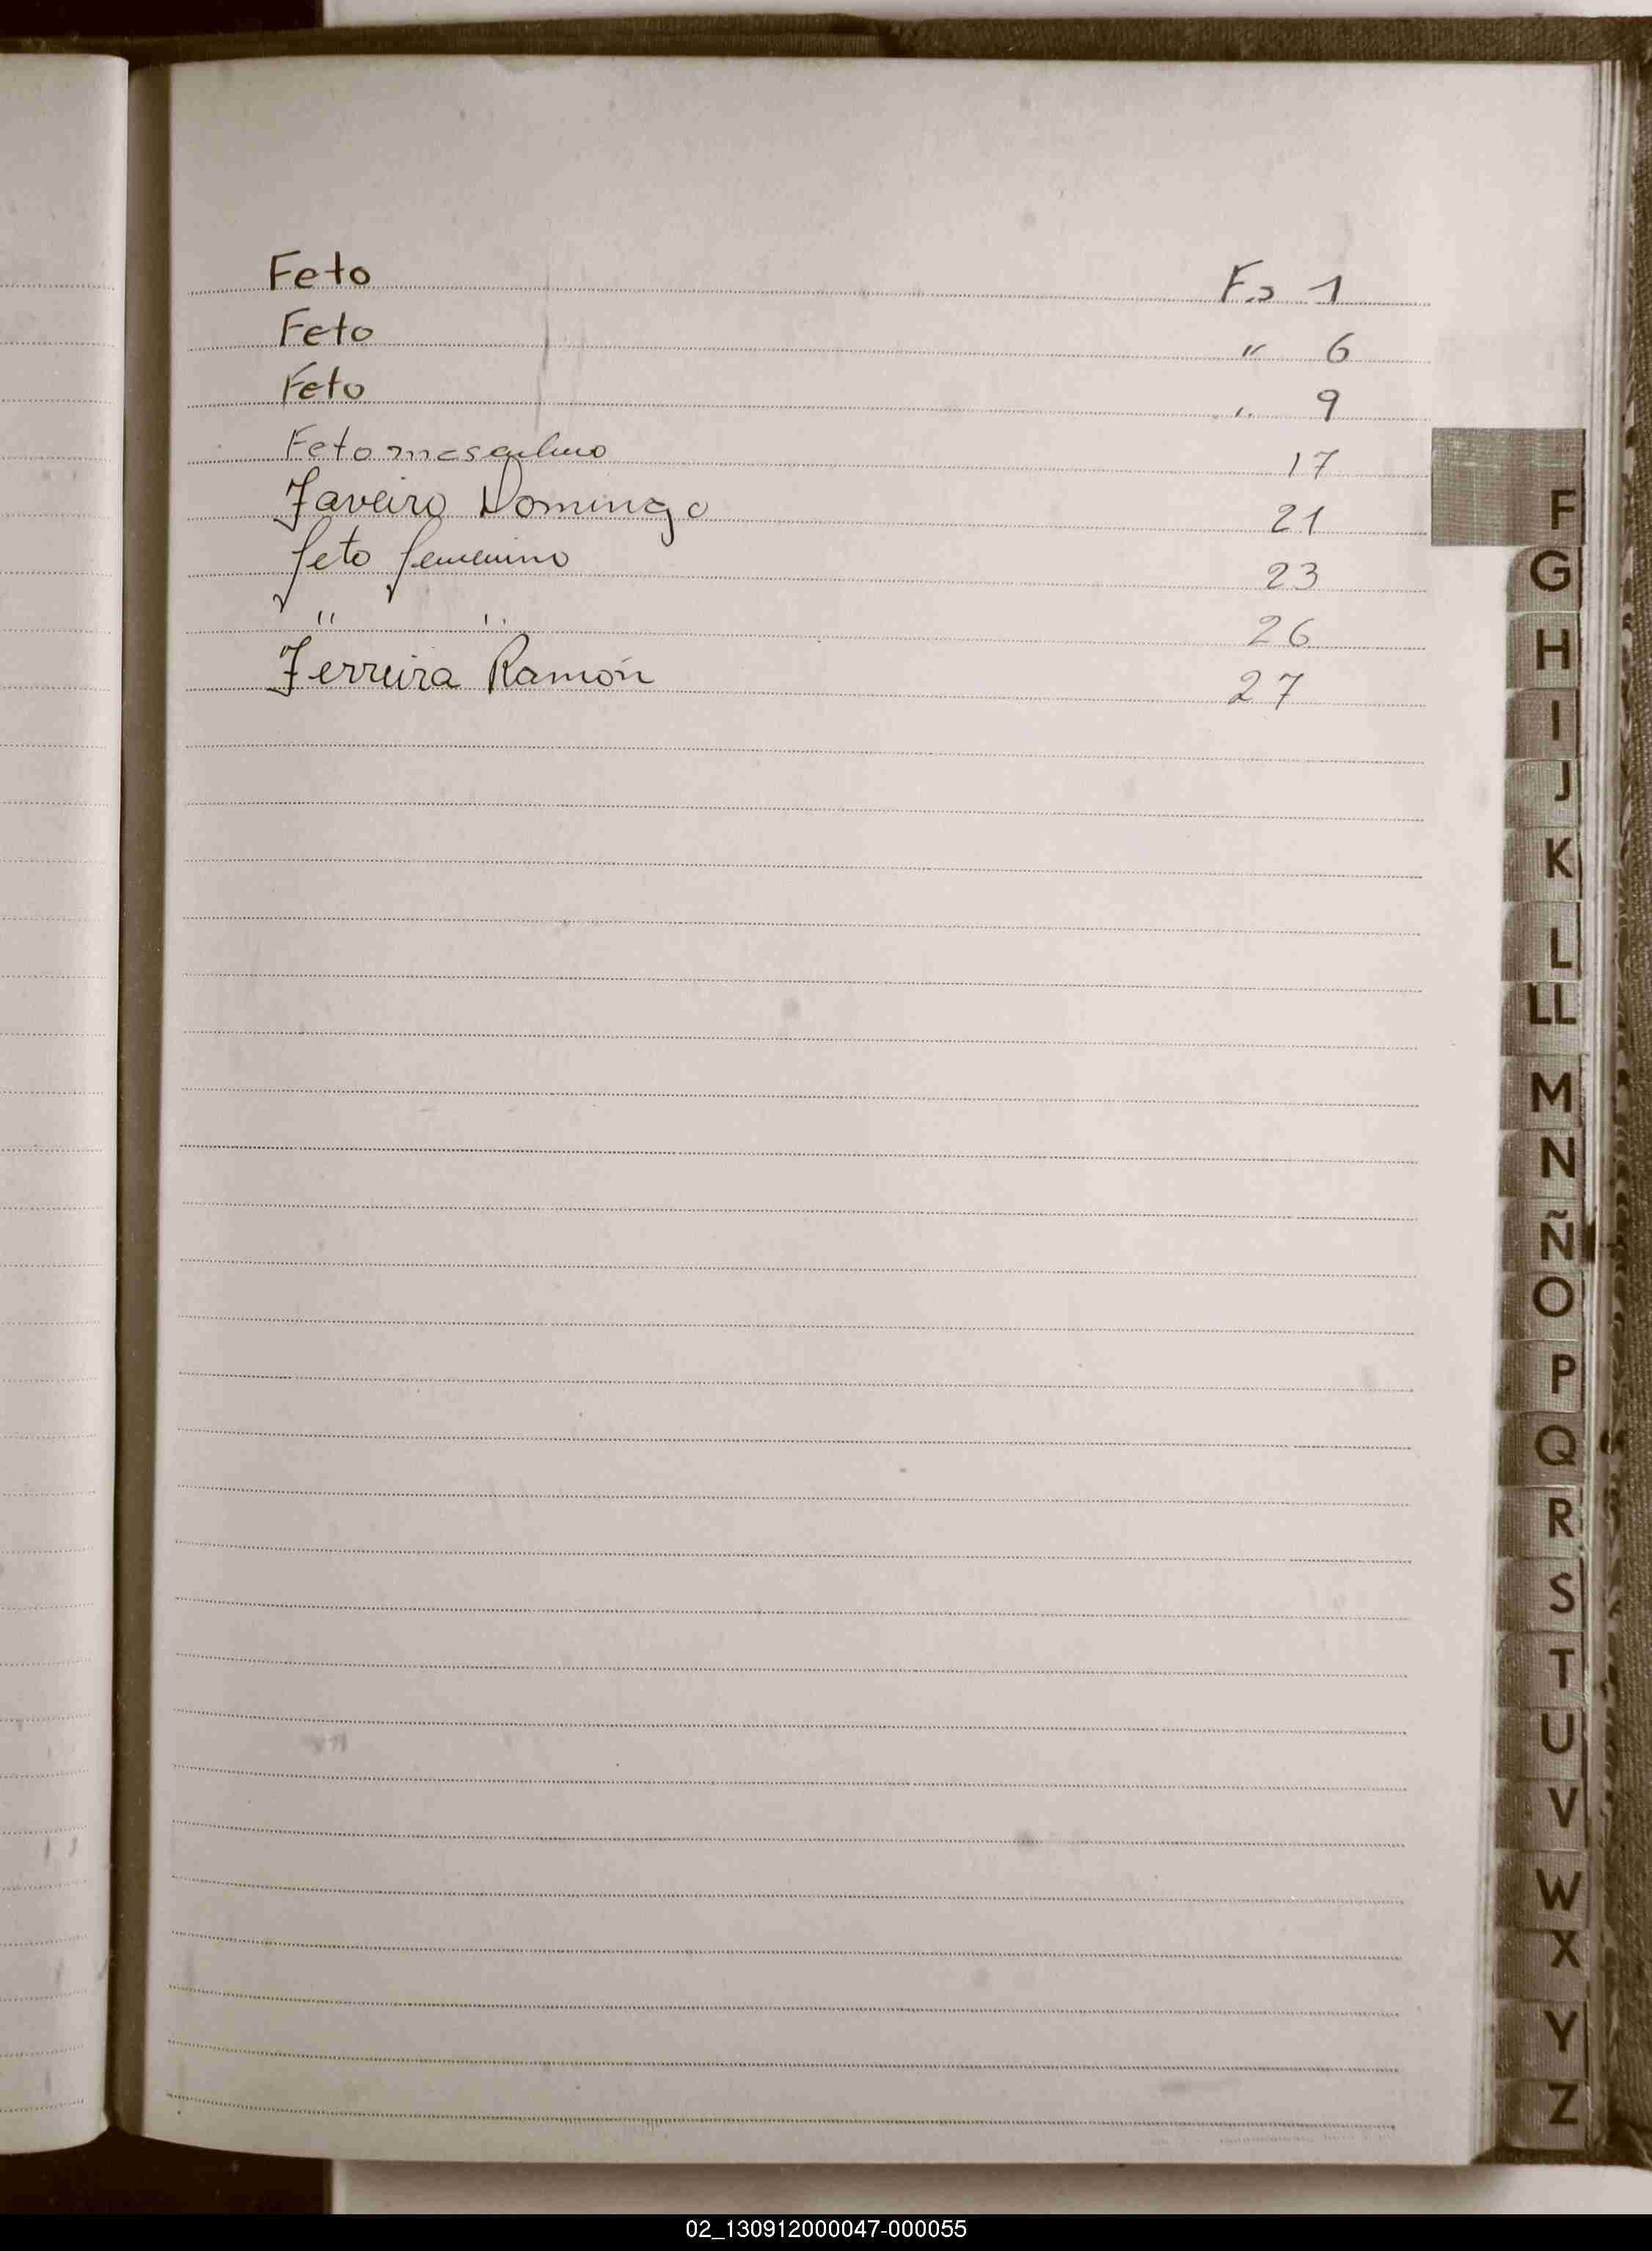 Feto Fo 1
Feto " 6
Feto " 9
Feto masculino 17
Faveiro Domingo 21
feto femenino 23
" " 26
Ferreira Ramón 27
F
G
H
I
J
K
L
LL
M
N
Ñ
O
P
Q
R
S
T
U
V
W
X
Y
Z
02_130912000047-000055